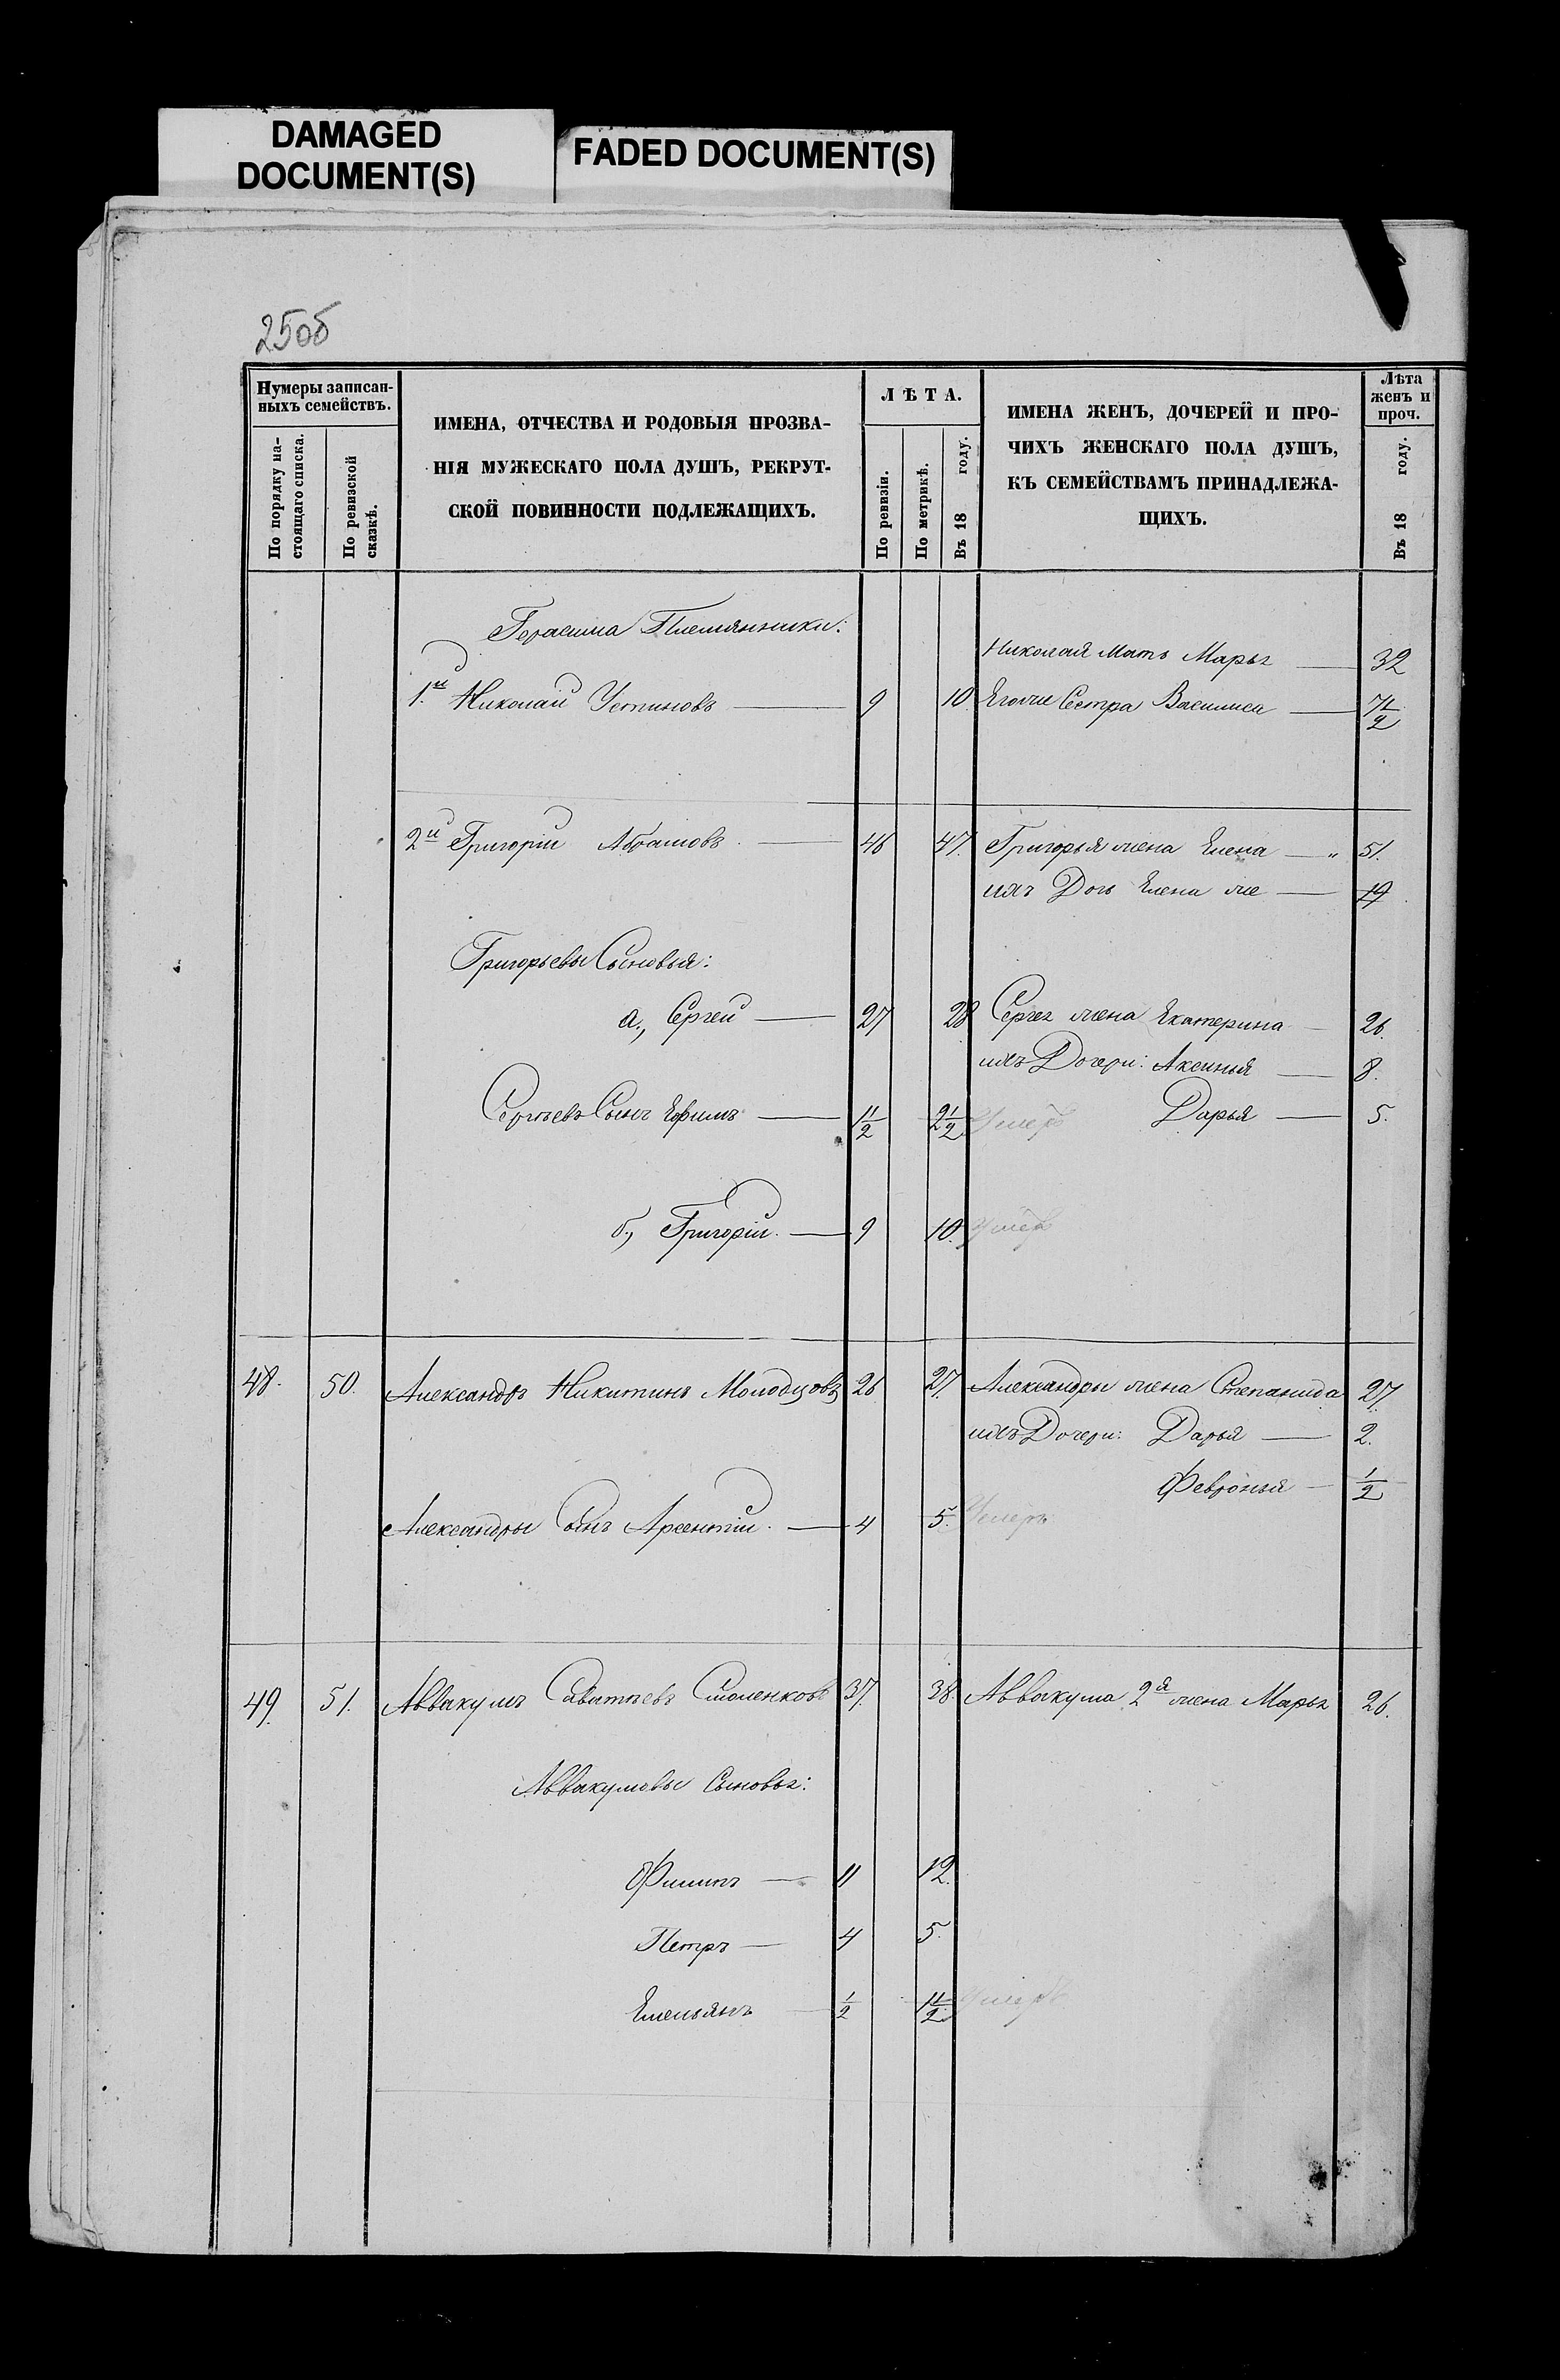 DAMAGED
DOCUMENT(S)
FADED DOCUMENT(S)
25об
Нумеры записан-
ныхъ семействъ.
По порядку на-
стоящаго списка.
По ревизской
сказкѣ.
ИМЕНА, ОТЧЕСТВА И РОДОВЫЯ ПРОЗВА-
НІЯ МУЖЕСКАГО ПОЛА ДУШЪ, РЕКРУТ-
СКОЙ ПОВИННОСТИ ПОДЛЕЖАЩИХЪ.
ЛѢТА.
По ревизіи.
По метрикѣ.
Въ 18 году.
ИМЕНА ЖЕНЪ, ДОЧЕРЕЙ И ПРО-
ЧИХЪ ЖЕНСКАГО ПОЛА ДУШЪ,
КЪ СЕМЕЙСТВАМЪ ПРИНАДЛЕЖА-
ЩИХЪ.
Лѣта
женъ и
проч.
Въ 18 году.
Герасима Племянники:
Николая Мать Марья — 32
1.й Николай Устиновъ — 9 10 Егоже Сестра Василиса — 7 1/2
2й Григорій Абрамовъ — 46 47. Григорья жена Елена — " 51.
ихъ Дочь Елена же — 19
Григорьевы Сыновья:
а., Сергей — 27 28 Сергея жена Екатерина — 26.
ихъ Дочери: Аксинья — 8.
Сергѣевъ Сынъ Ефимъ — 1 1/2 2 1/2 Умеръ Дарья — 5.
б., Григорій. — 9 10. Умеръ
48. 50. Александръ Никитинъ Молодцовъ 26 27. Александры жена Степанида 27.
ихъ Дочери: Дарья — 2.
Февронья — 1/2
Александры Сынъ Арсентій. — 4 5. Умеръ
49. 51. Аввакумъ Савитѣевъ Смоленковъ 37. 38. Аввакума 2я жена Марья 26.
Аввакумовы Сыновья:
Филипъ — 11 12.
Петръ — 4 5.
Емельянъ — 1/2 1 1/2 Умеръ